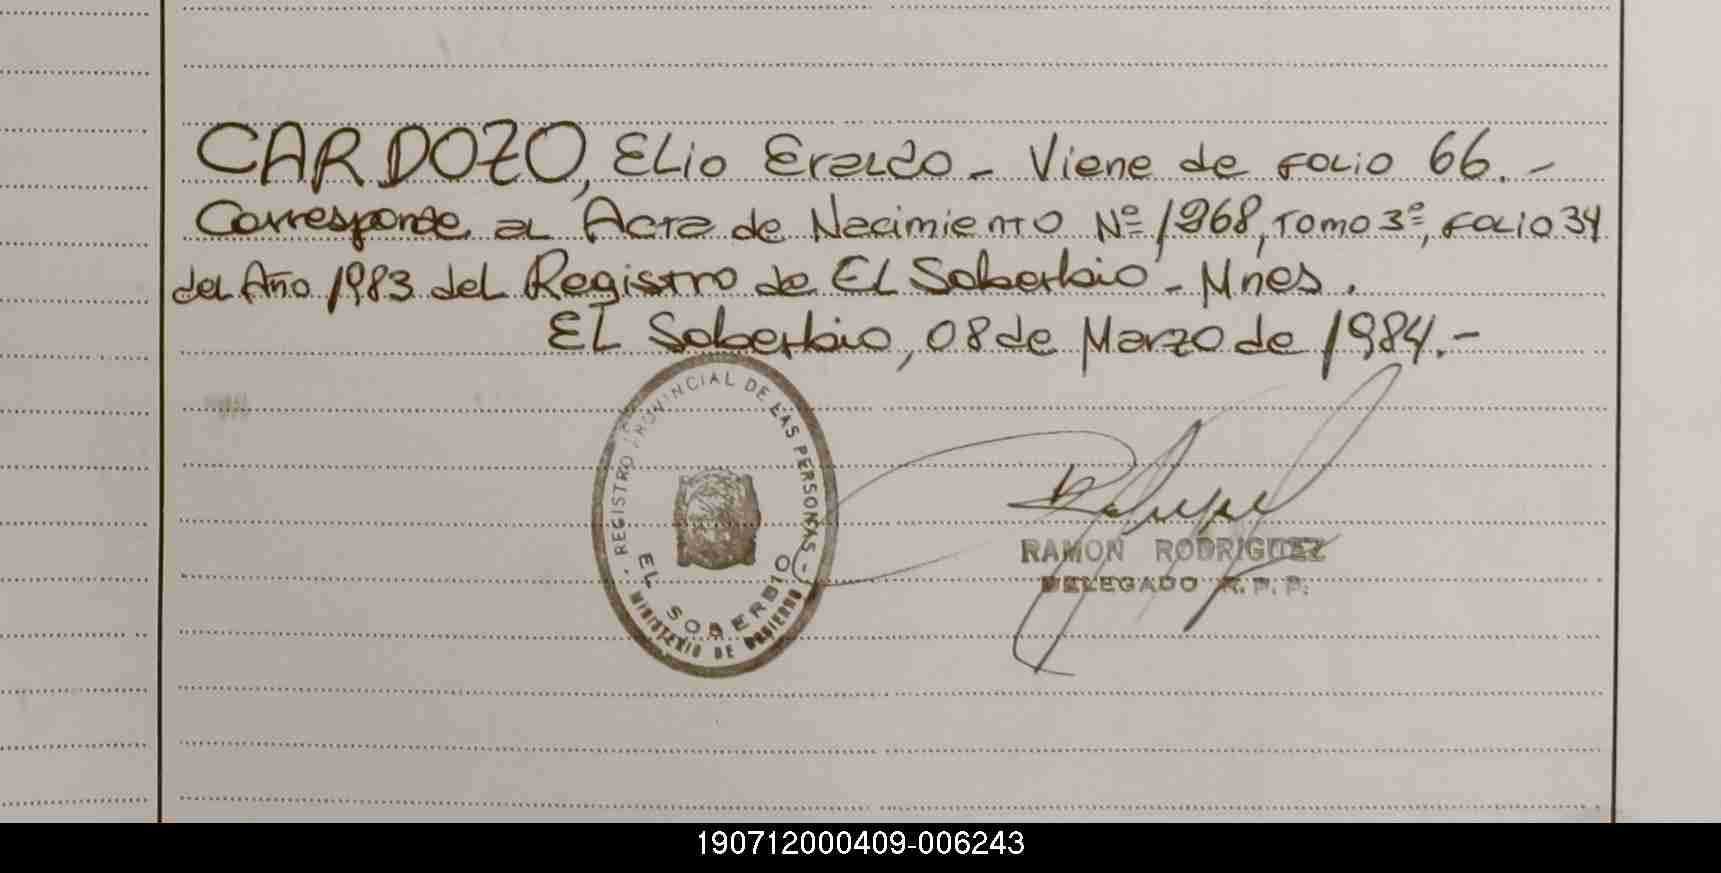 CARDOZO, Elio Eraldo - Viene de folio 66.-
Corresponde al Acta de Nacimiento Nº 1968, Tomo 3º, folio 34
del Año 1983 del Registro de El Soberbio - Mnes.
El Soberbio, 08 de Marzo de 1984.-
REGISTRO PROVINCIAL DE LAS PERSONAS -
EL SOBERBIO
MINISTERIO DE GOBIERNO
RAMON RODRIGUEZ
DELEGADO R. P. P.
190712000409-006243